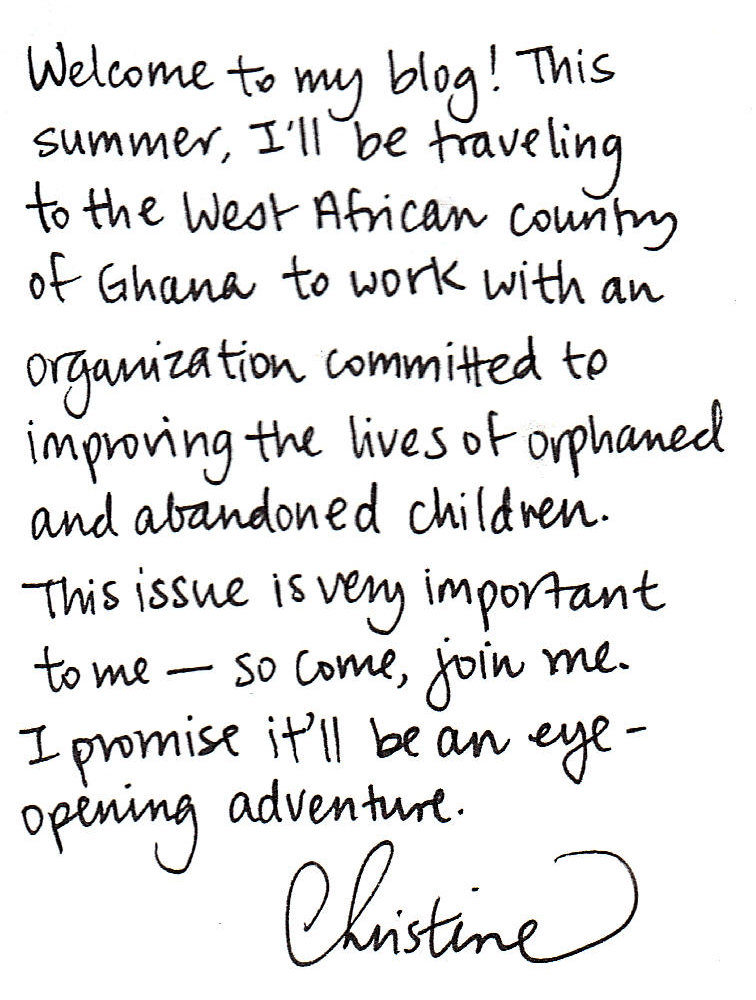 Welcome to my blog! This
summer, I'll be traveling
to the West African country
of Ghana to work with an
organization committed to
improving the lives of orphaned
and abandoned children.
This issue is very important
to me — so come, join me.
I promise it'll be an eye-
opening adventure.
Christine